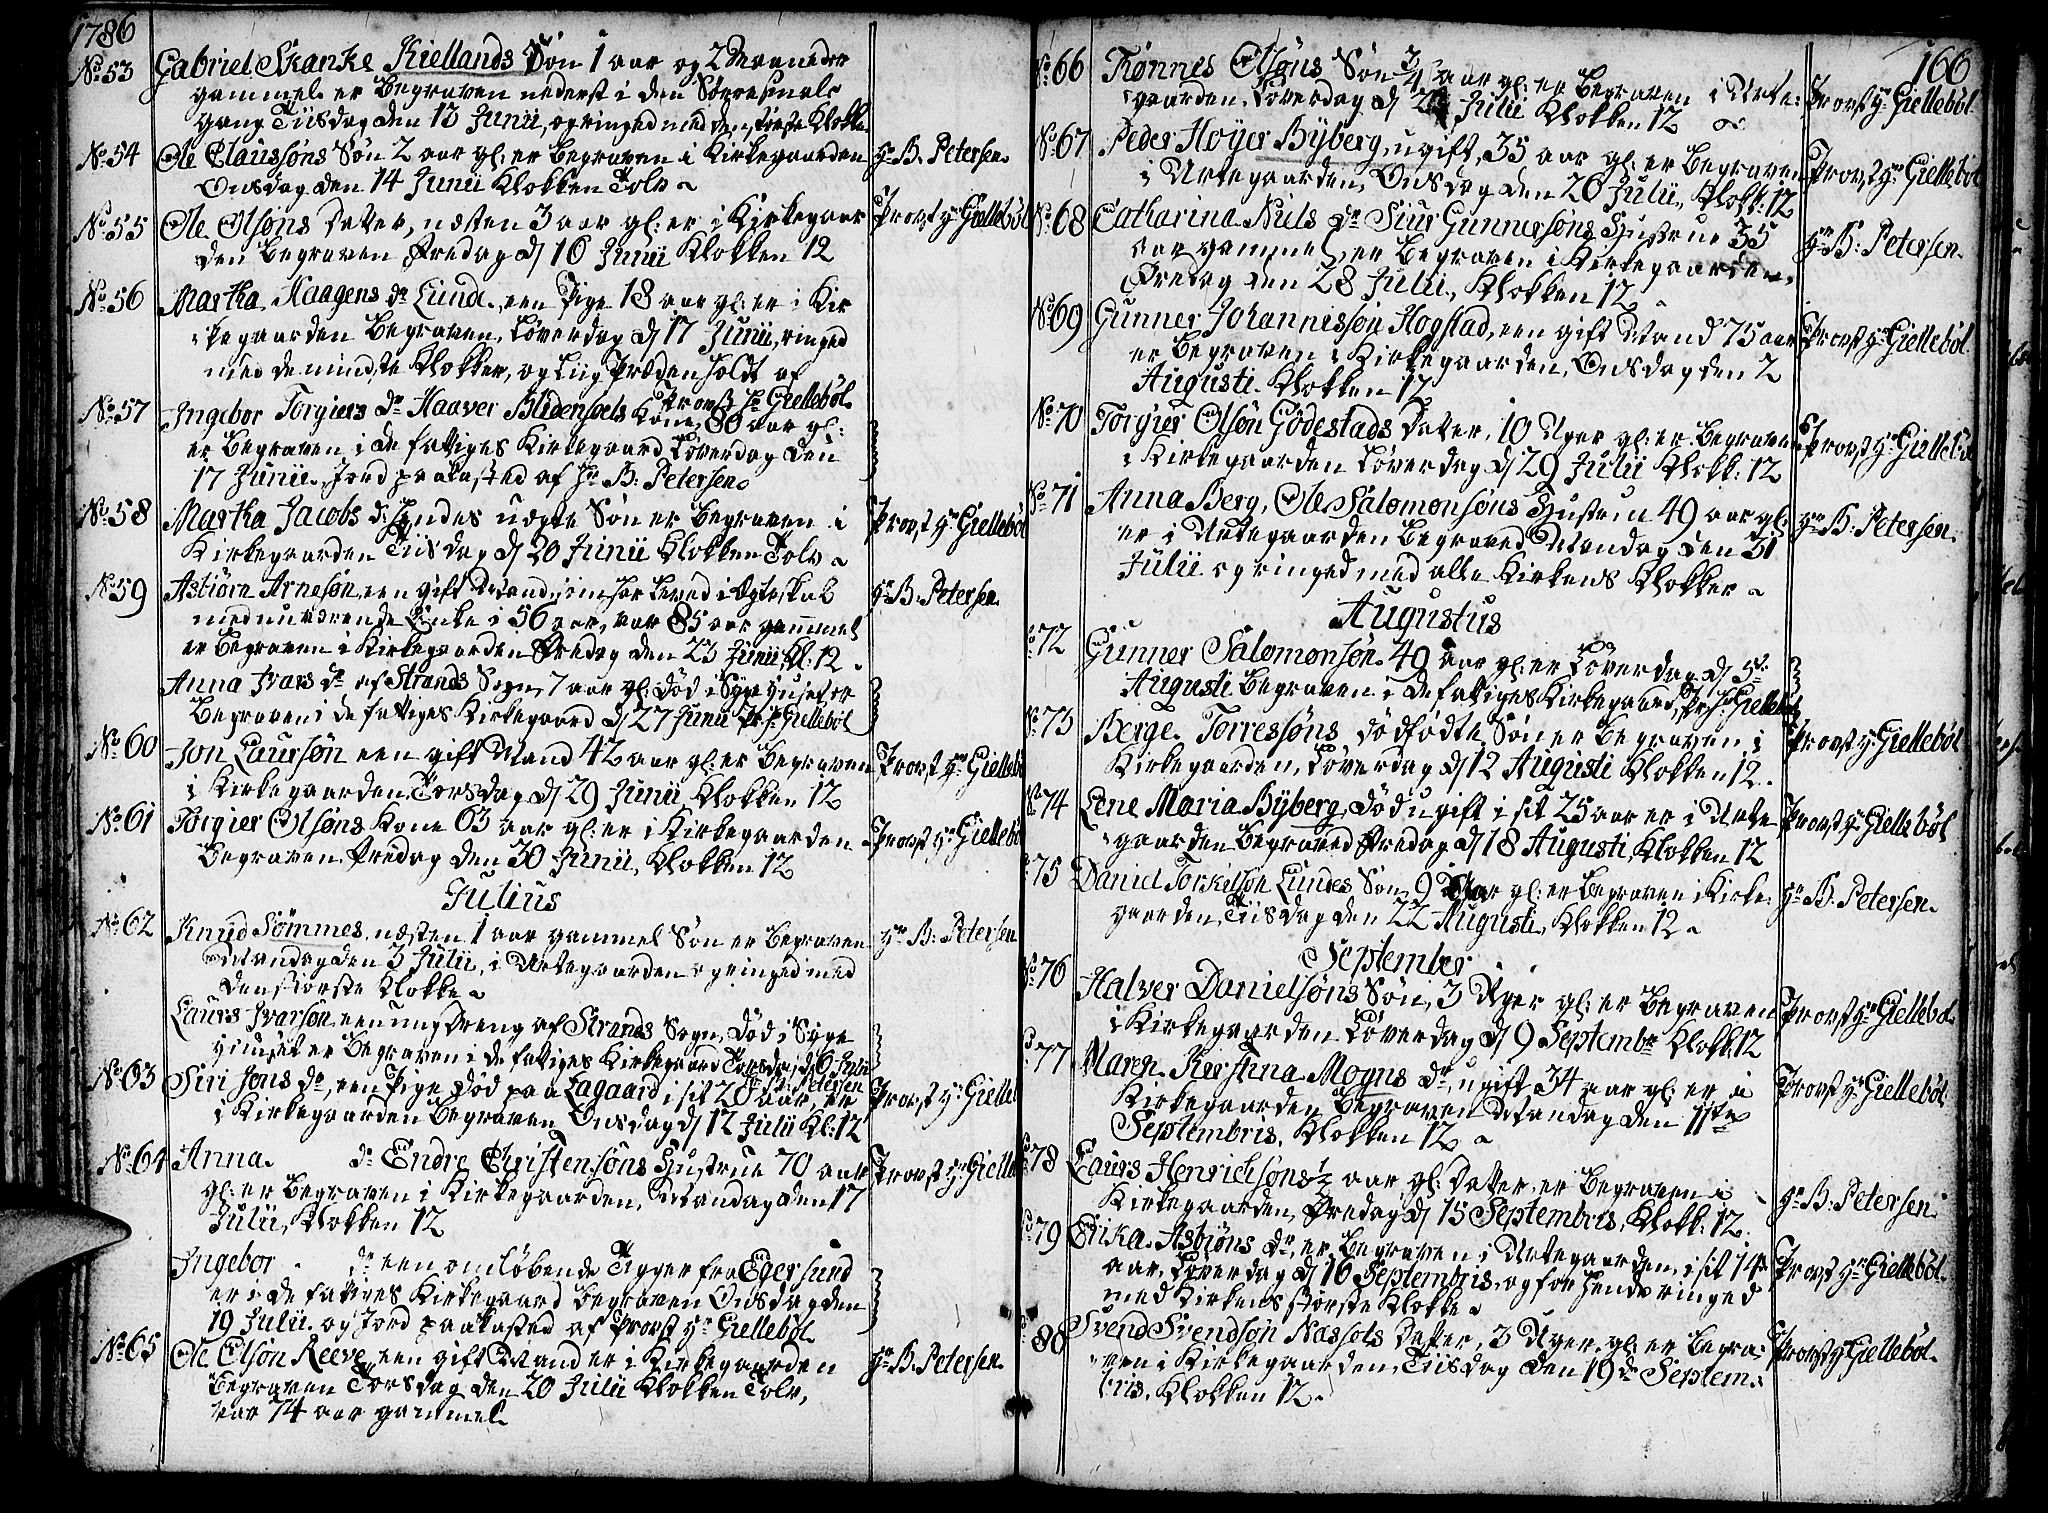 1786
No 53 Gabriel Skanke Kiellands Søn 1 aar og 2 Maaneder
gammel er begraven nederst i den Nørre smale
gang Tiisdag den 13 Junii, og ringed med den største Klokke
No 54 Ole Claussøns Søn 2 aar gl: er begraven i Kirkegaarden
Onsdag den 14 Junii Klokken Tolv
Hr B. Petersen.
No 55 Ole Olsøns Datter, næsten 3 aar gl: er i Kirkegaar
den begraven Fredag d 16 Junii Klokken 12
Provst Hr Giellebøl
No 56 Martha Haagens dr Lunde, een Pige 18 aar gl: er i Kir
kegaarden begraven, Løverdag d 17 Junii, ringed
med de mindste Klokker, og Liig Præken holdt af
Provst Hr Giellebøl.
No 57 Ingebor Torgiers dr Haaver Blidensoels Kone, 80 aar gl:
er begraven i de fattiges Kirkegaard Løverdag den
17 Junii. Jord paakasted af Hr B: Petersen.
No 58 Martha Jacobs dr hendes uægte Søn er begraven i
Kirkegaarden Tiisdag d 20 Junii Klokken Tolv
Provst Hr Giellebøl
No 59 Asbiørn Arnesøn, een gift Mand, som har leved i Ægteskab
med nuværende Enke i 56 aar, var 85 aar gammel
er begraven i Kirkegaarden Fredag den 23 Junii, Kl: 12.
Hr B. Petersen.
Anna Ivars dr af Strands Sogn, 7 aar gl: død i Syge huset er
begraven i de fattiges Kirkegaard d 27 Junii Pr: Hr Giellebøl
No 60 Jon Laursøn een gift Mand 42 aar gl: er begraven
i Kirkegaarden, Torsdag d 29 Junii Klokken 12
Provst Hr Giellebøl
No 61 Torgier Olsøns Kone 63 aar gl: er i Kirkegaarden
begraven Fredag den 30 Junii, Klokken 12
Provst Hr Giellebøl
Julius
No 62 Knud Sømmes, næsten 1 aar gammel Søn er begraven
Mandag den 3 Julii, i Urtegaarden og ringed med
den største Klokke
Hr B: Petersen
Laurs Ivarsøn, een ung Dreng af Strands Sogn, død i Syge
huuset er begraven i de fattiges Kirkegaard Torsdag d 6 Julii
Hr B: Petersen
No 63 Siri Jons dr, een Pige død paa Lagaard i sit 20 aar, er
i Kirkegaarden begraven Onsdag d 12 Julii Kl: 12
Provst Hr Gielleb
No 64 Anna dr Endre Christensøns Hustrue 70 aar
gl: er begraven i Kirkegaarden, Mandag den 17
Julii, Klokken 12
Provst Hr Gielleb
Ingebor dr een omløbende Tigger fra Egersund
er i de fattiges Kirkegaard begraven Onsdag den
19 Julii. og Jord paakasted af Provst Hr Giellebøl
No 65 Ole Olsøn Reeve, een gift Mand er i Kirkegaarden
begraven Torsdag den 20 Julii Klokken Tolv,
var 74 aar gammel
Hr B. Petersen.
166
No 66 Tønnes Olsøns Søn 3/4 aar gl: er begraven i Urte:
gaarden, Løverdag d Julii Klokken 12
Provst Hr Giellebøl.
No 67 Peder Høyer Byberg, ugift, 35 aar gl: er begraven
i Urtegaarden, Onsdag den 26 Julii, Klokk: 12
Provst Hr Giellebøl
No 68 Catharina Niels dr Siur Gunnersøns Hustrue 35
aar gammel, er begraven i Kirkegaarden,
Fredag den 28 Julii, Klokken 12
Hr B: Petersen.
No 69 Gunner Johannissøn Hogstad, een gift Mand 75 aar
er begraven i Kirkegaarden, Onsdag den 2
Augusti. Klokken 12
Provst Hr Giellebøl.
No 70 Torgier Olsøn Gødestads Datter, 10 Uger gl: er begraven
i Kirkegaarden Løverdag d 29 Julii Klokk: 12
Provst Hr Giellebøl
No 71 Anna Berg, Ole Salomonsøns Hustrue 49 aar gl:
er i Urtegaarden begraved Mandag den 31
Julii og ringed med alle Kirkens Klokker
Hr B: Petersen.
Augustus
72 Gunner Salomonsøn 49 aar gl: er Løverdag d 5te
Augusti begraven i de fattiges Kirkegaard, Pr: Hr Giellebøl
No 73 Berge Torressøns dødfødte Søn er begraven i
Kirkegaarden, Løverdag d 12 Augusti Klokken 12.
Provst Hr Giellebøl
No 74 Lene Maria Byberg, død ugift i sit 25 aar er i Urte
gaarden begraved Fredag d 18 Augusti, Klokken 12
Provst Hr Giellebøl
75 Daniel Torkilsøn Lundes Søn, 9 aar gl: er begraven i Kirke:
gaarden, Tiisdag den 22 Augusti, Klokken 12
Hr B. Petersen.
September
No 76 Halver Danielsøns Søn, 3 Uger gl: er begraven
i Kirkegaarden Løverdag d 9 Septembr Klokk: 12
Provst Hr Giellebøl.
77 Maren Kirstina Mogns dr, ugift 34 aar gl: er i
Kirkegaarden begraven Mandag den 11te
Septembris, Klokken 12
Provst Hr Giellebøl
78 Laurs Henrichsøns 1/2 aar gl: Datter, er begraven i
Kirkegaarden, Fredag d 15 Septembris, Klokk: 12.
Hr B: Petersen
79 Erika Asbiøns dr, er begraven i Urtegaarden, i sit 14de
aar, Løverdag d 16 Septembris, og for hende ringed
med Kirkens største Klokke
Provst Hr Giellebøl.
80 Svend Svendsøn Nassøls Datter, 3 Uger gl: er begra:
ven i Kirkegaarden, Tiisdag den 19de Septem:
bris, Klokken 12.
Provst Hr Giellebøl.